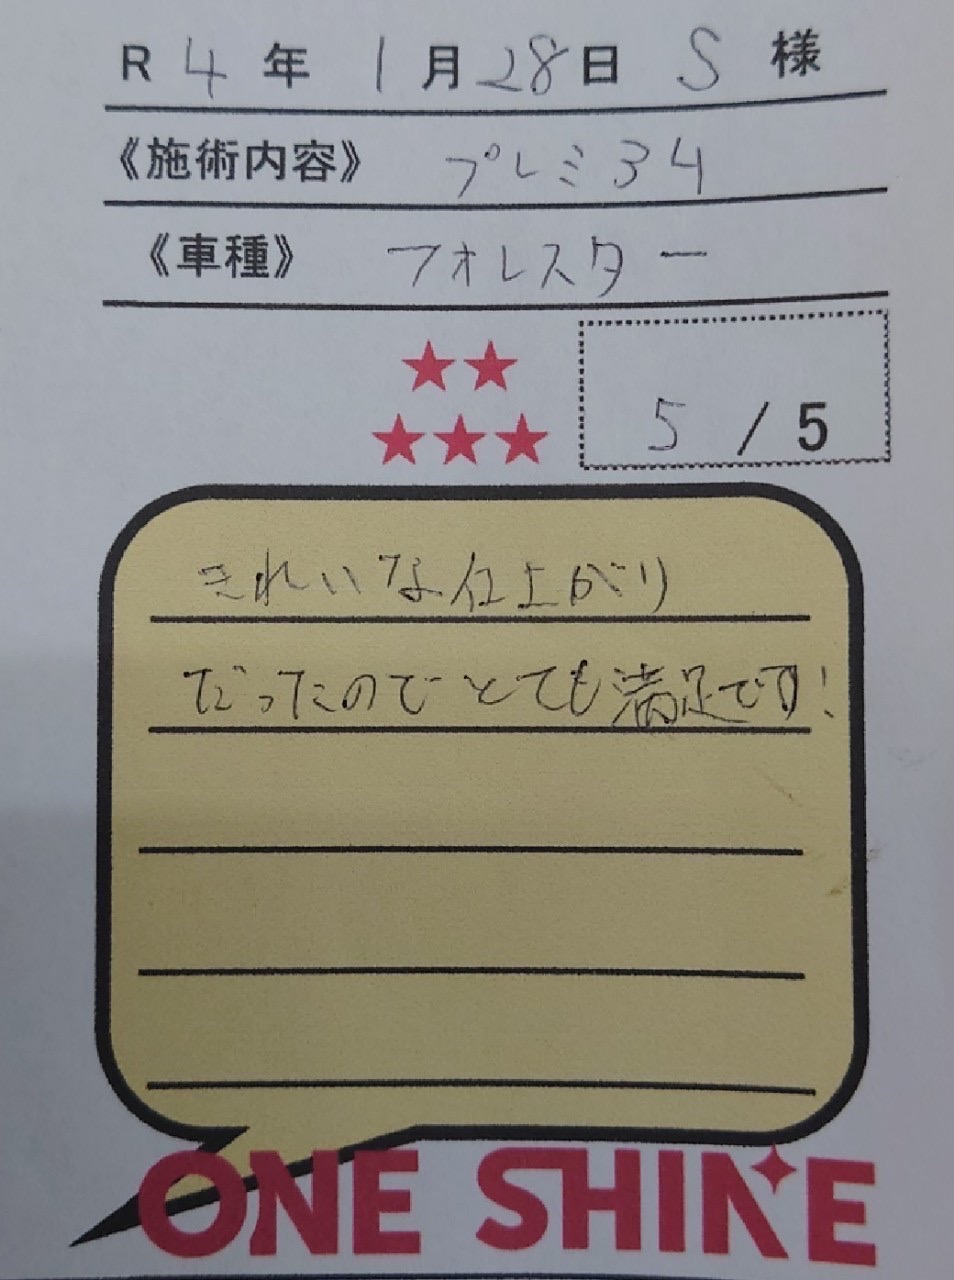 R 4 年 1 月 28 日 S 様
《施術内容》 プレミ34
《車種》 フォレスター
5 / 5
きれいな仕上がり
だったのでとても満足です!
ONE SHINE